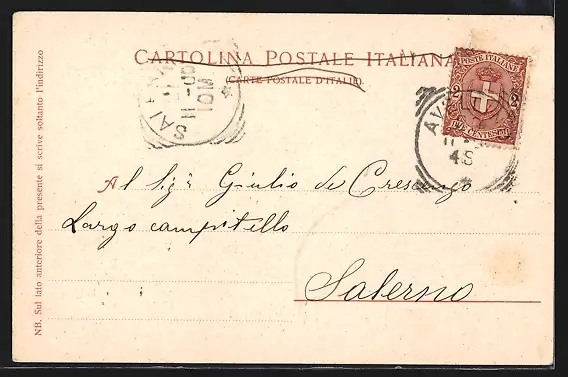 CARTOLINA POSTALE ITALIANA
(CARTE POSTALE D'ITALIE)
POSTE ITALIANE
2 2
DUE CENTESIMI
AV
4S
SALER
11-00
10M
Al Sigr Giulio de Crescenzo
Largo campitello
Salerno
NB. Sul lato anteriore della presente si scrive soltanto l'indirizzo